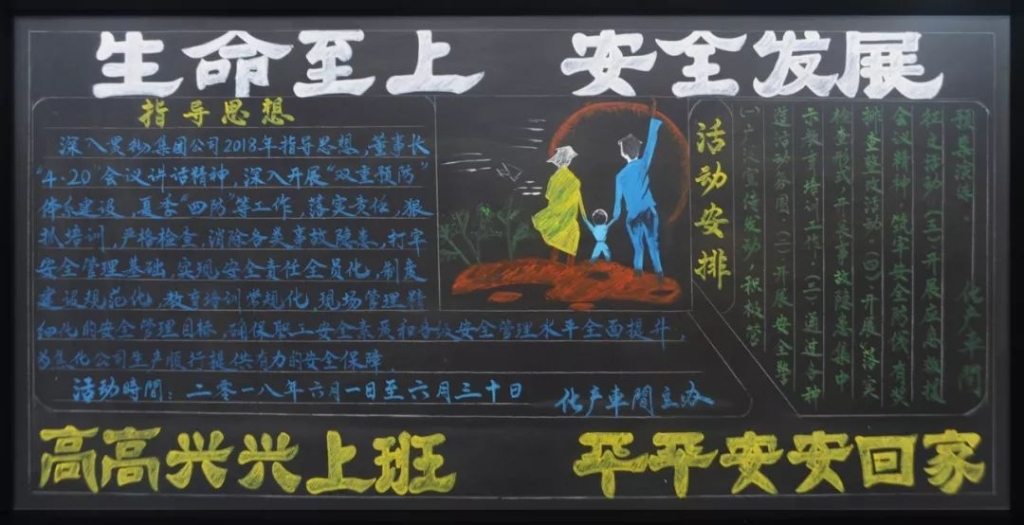 生命至上 安全发展
指导思想
深入贯彻集团公司2018年指导思想,董事长
"4·20"会议讲话精神,深入开展"双重预防"
体系建设,夏季"四防"等工作,落实责任,狠
抓培训,严格检查,消除各类事故隐患,打牢
安全管理基础,实现安全责任全员化,制度
建设规范化,教育培训常规化,现场管理精
细化的安全管理目标,确保职工安全素质和各级安全管理水平全面提升,
为焦化公司生产顺行提供有力的安全保障。
活动時間:二零一八年六月一日至六月三十日
化产車間主办
活动安排
(一)广泛宣传发动,积极营
造活动氛围。(二)开展安全警
示教育培训工作。(三)通过各种
检查形式,开展事故隐患集中
排查整改活动。(四)开展落实
会议精神,筑牢安全防线有奖
征文活动。(五)开展应急救援
预案演练。
化产車間
高高兴兴上班 平平安安回家